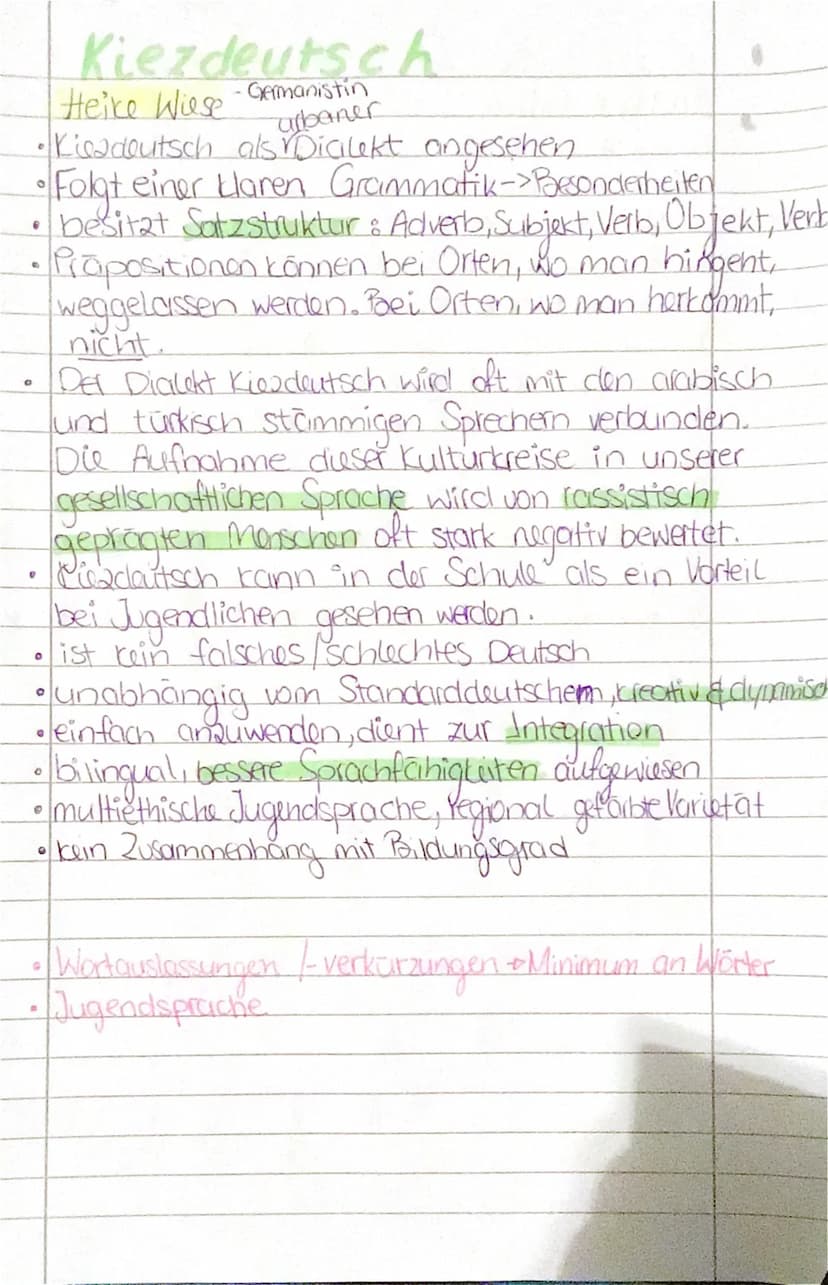 Kiezdeutsch
Heike Wiese - Germanistin
urbaner
• Kiezdeutsch als Dialekt angesehen
• Folgt einer klaren Grammatik -> Besonderheiten
• besitzt Satzstruktur: Adverb, Subjekt, Verb, Objekt, Verb
• Präpositionen können bei Orten, wo man hingeht,
weggelassen werden. Bei Orten, wo man herkommt,
nicht.
• Der Dialekt Kiezdeutsch wird oft mit den arabisch
und türkisch stämmigen Sprechern verbunden.
Die Aufnahme dieser Kulturkreise in unserer
gesellschaftlichen Sprache wird von rassistisch
geprägten Menschen oft stark negativ bewertet.
• Kiezdeutsch kann in der Schule als ein Vorteil
bei Jugendlichen gesehen werden.
• ist kein falsches/schlechtes Deutsch
• unabhängig vom Standarddeutschem, kreativ & dynmisch
• einfach anzuwenden, dient zur Integration
• bilingual, bessere Sprachfähigkeiten aufgewiesen
• multiethische Jugendsprache, regional gefärbte Varietät
• kein Zusammenhang mit Bildungsgrad
• Wortauslassungen /-verkürzungen → Minimum an Wörter
• Jugendsprache